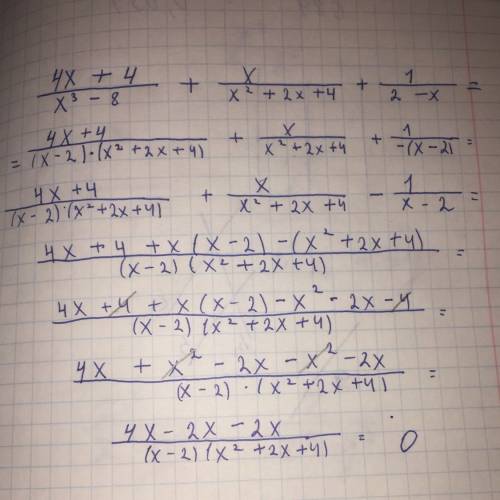 (4x + 4)/(x³ - 8) + x/(x² + 2x + 4) + 1/(2 - x) =
= (4x + 4)/((x - 2)·(x² + 2x + 4)) + x/(x² + 2x + 4) + 1/(-(x - 2)) =
(4x + 4)/((x - 2)·(x² + 2x + 4)) + x/(x² + 2x + 4) - 1/(x - 2) =
(4x + 4 + x(x - 2) - (x² + 2x + 4))/((x - 2)(x² + 2x + 4)) =
(4x + 4 + x(x - 2) - x² - 2x - 4)/((x - 2)(x² + 2x + 4)) =
(4x + x² - 2x - x² - 2x)/((x - 2)·(x² + 2x + 4)) =
(4x - 2x - 2x)/((x - 2)(x² + 2x + 4)) = 0